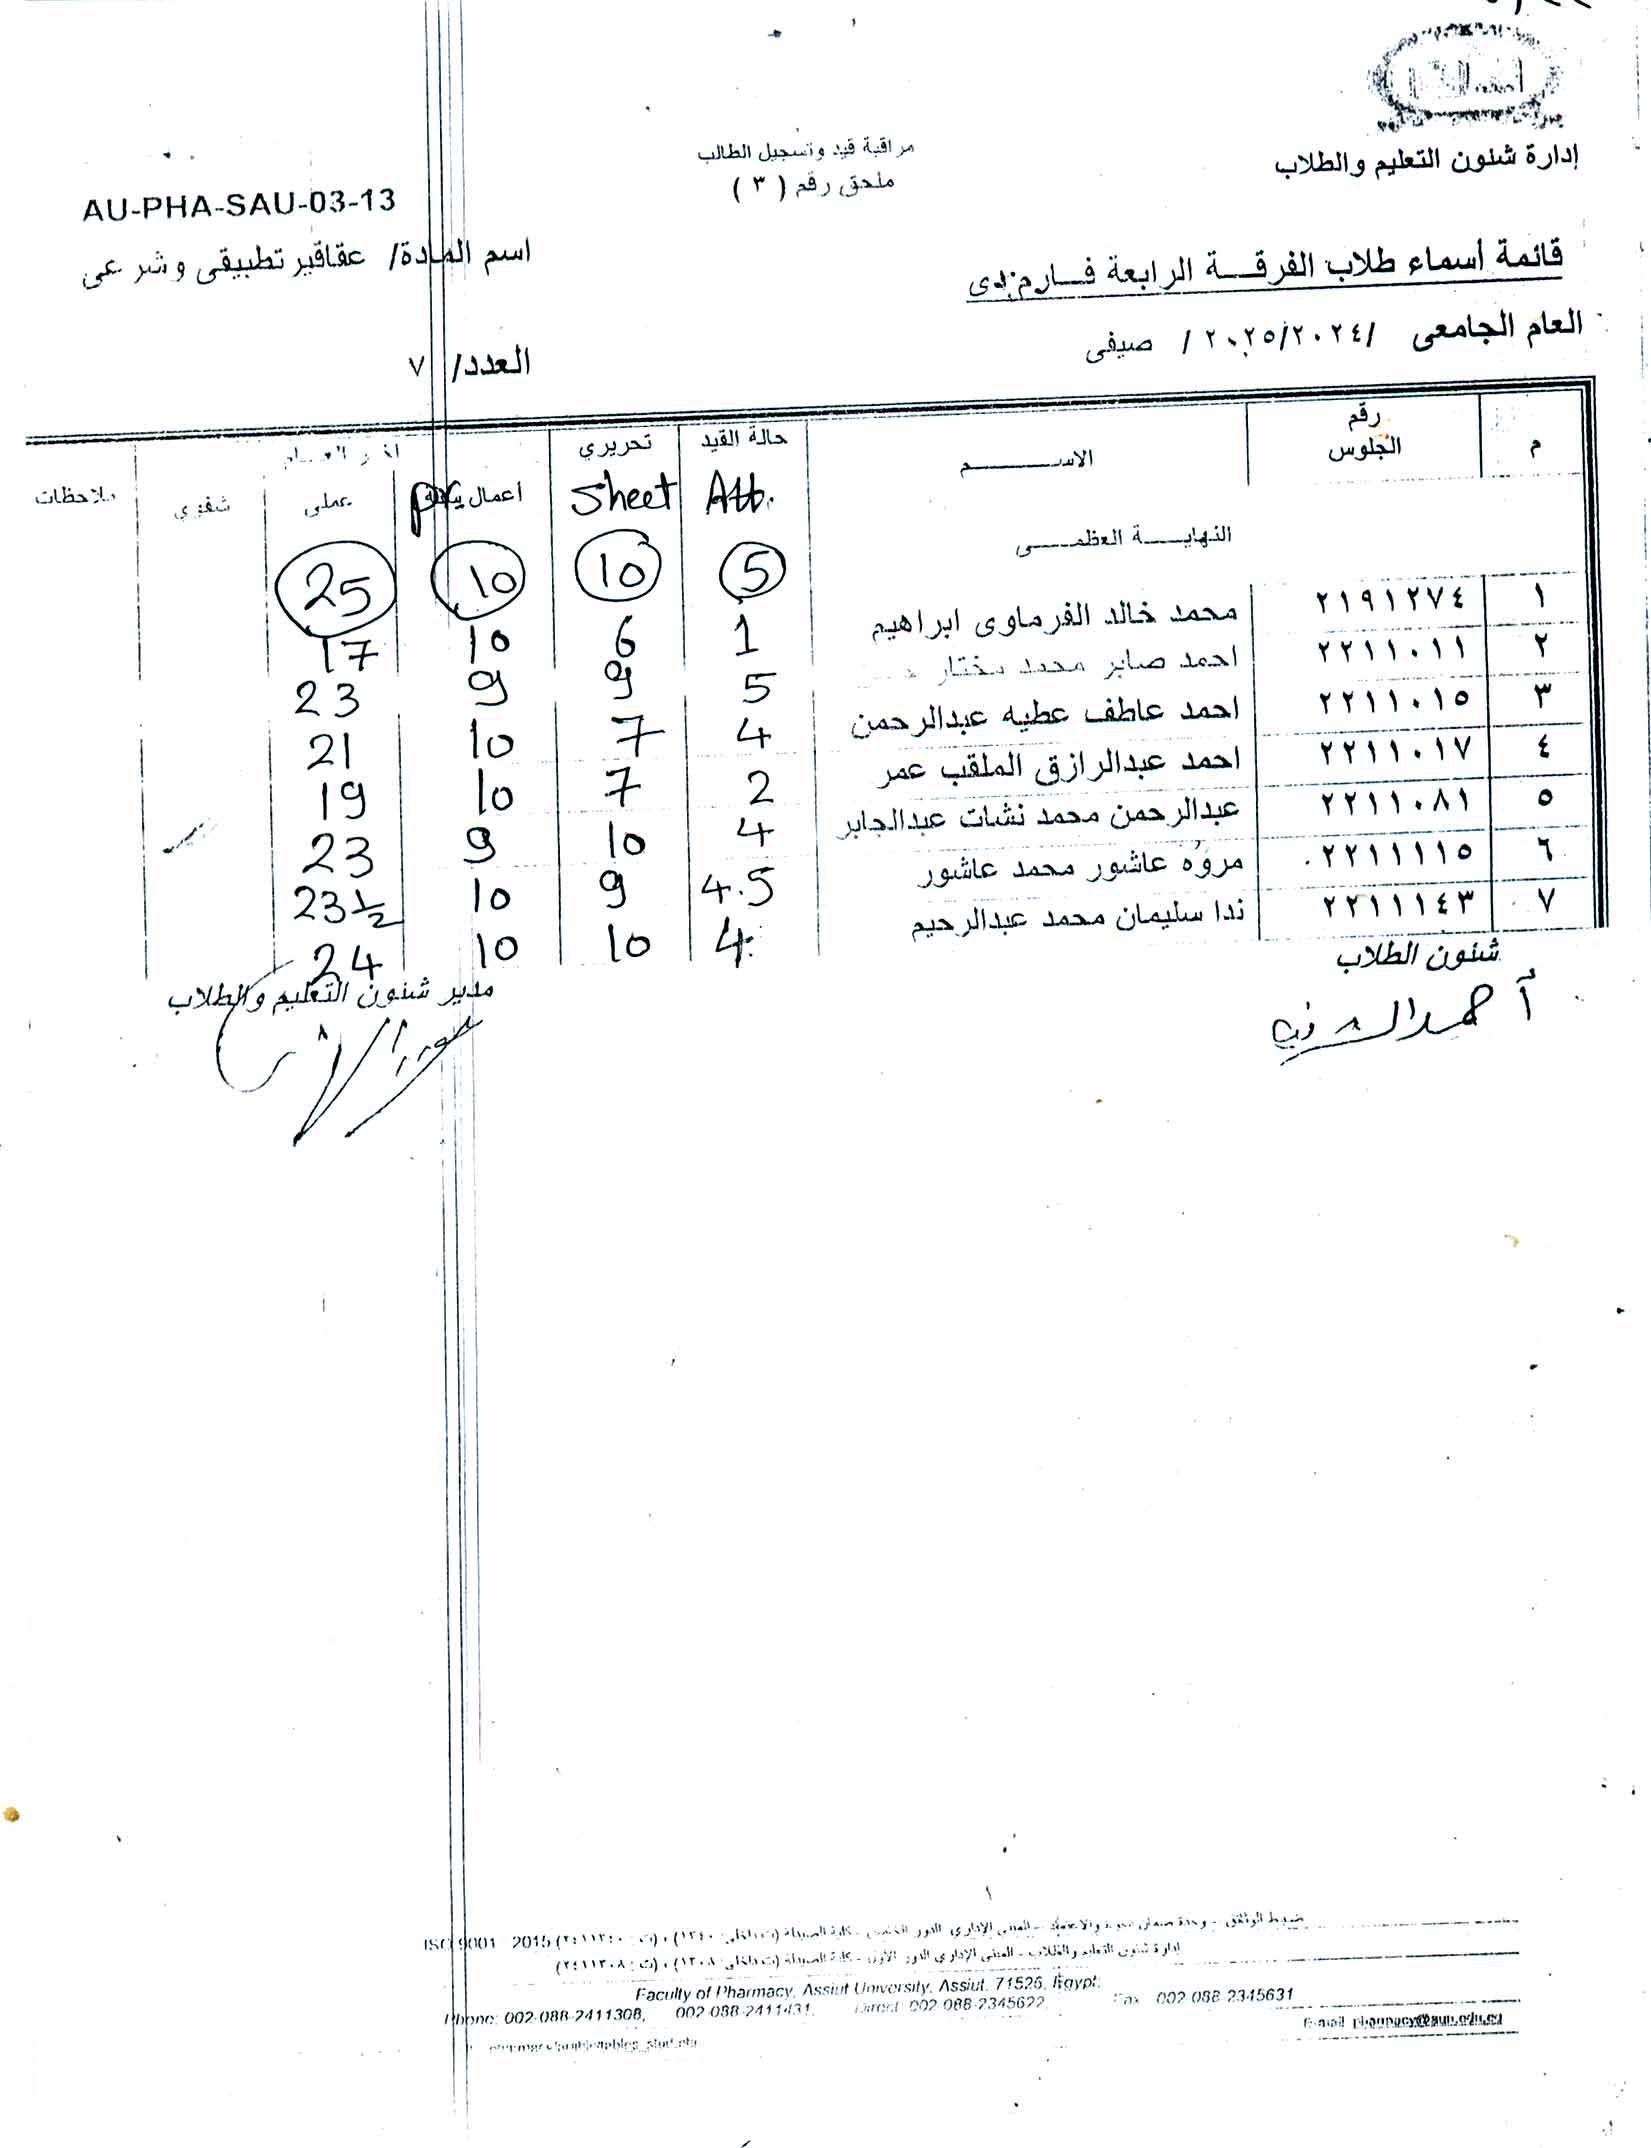 إدارة شئون التعليم والطلاب
مراقبة قيد وتسجيل الطالب
ملحق رقم ( ٣ )
AU-PHA-SAU-03-13
قائمة أسماء طلاب الفرقة الرابعة فارم دى
اسم المادة/ عقاقير تطبيقى وشرعى
العام الجامعى /٢٠٢٥/٢٠٢٤ / صيفى
العدد/ ٧
م رقم الجلوس الاسم حالة القيد تحريري آخر العام ملاحظات
Att. Sheet أعمال عملى شفوي
النهاية العظمى 5 10 10 25
١ ٢١٩١٢٧٤ محمد خالد الفرماوى ابراهيم 1 6 10 17
٢ ٢٢١١٠١١ احمد صابر محمد مختار 5 9 9 23
٣ ٢٢١١٠١٥ احمد عاطف عطيه عبدالرحمن 4 7 10 21
٤ ٢٢١١٠١٧ احمد عبدالرازق الملقب عمر 2 7 10 19
٥ ٢٢١١٠٨١ عبدالرحمن محمد نشات عبدالجابر 4 10 9 23
٦ ٢٢١١١١٥ مروه عاشور محمد عاشور 4.5 9 10 23½
٧ ٢٢١١١٤٣ ندا سليمان محمد عبدالرحيم 4 10 10 24
شئون الطلاب
مدير شئون التعليم والطلاب
١
ISO 9001 2015
إدارة شئون التعليم والطلاب - المبنى الإداري الدور الأول - كلية الصيدلة (ت داخلى: ١٣٠٨) ، (ت : ٢٤١١٣٠٨)
Faculty of Pharmacy, Assiut University, Assiut, 71526, Egypt.
Phone: 002-088-2411308, 002-088-2411431, Direct: 002-088-2345622, Fax 002-088-2345631
E-mail pharmacy@aun.edu.eg